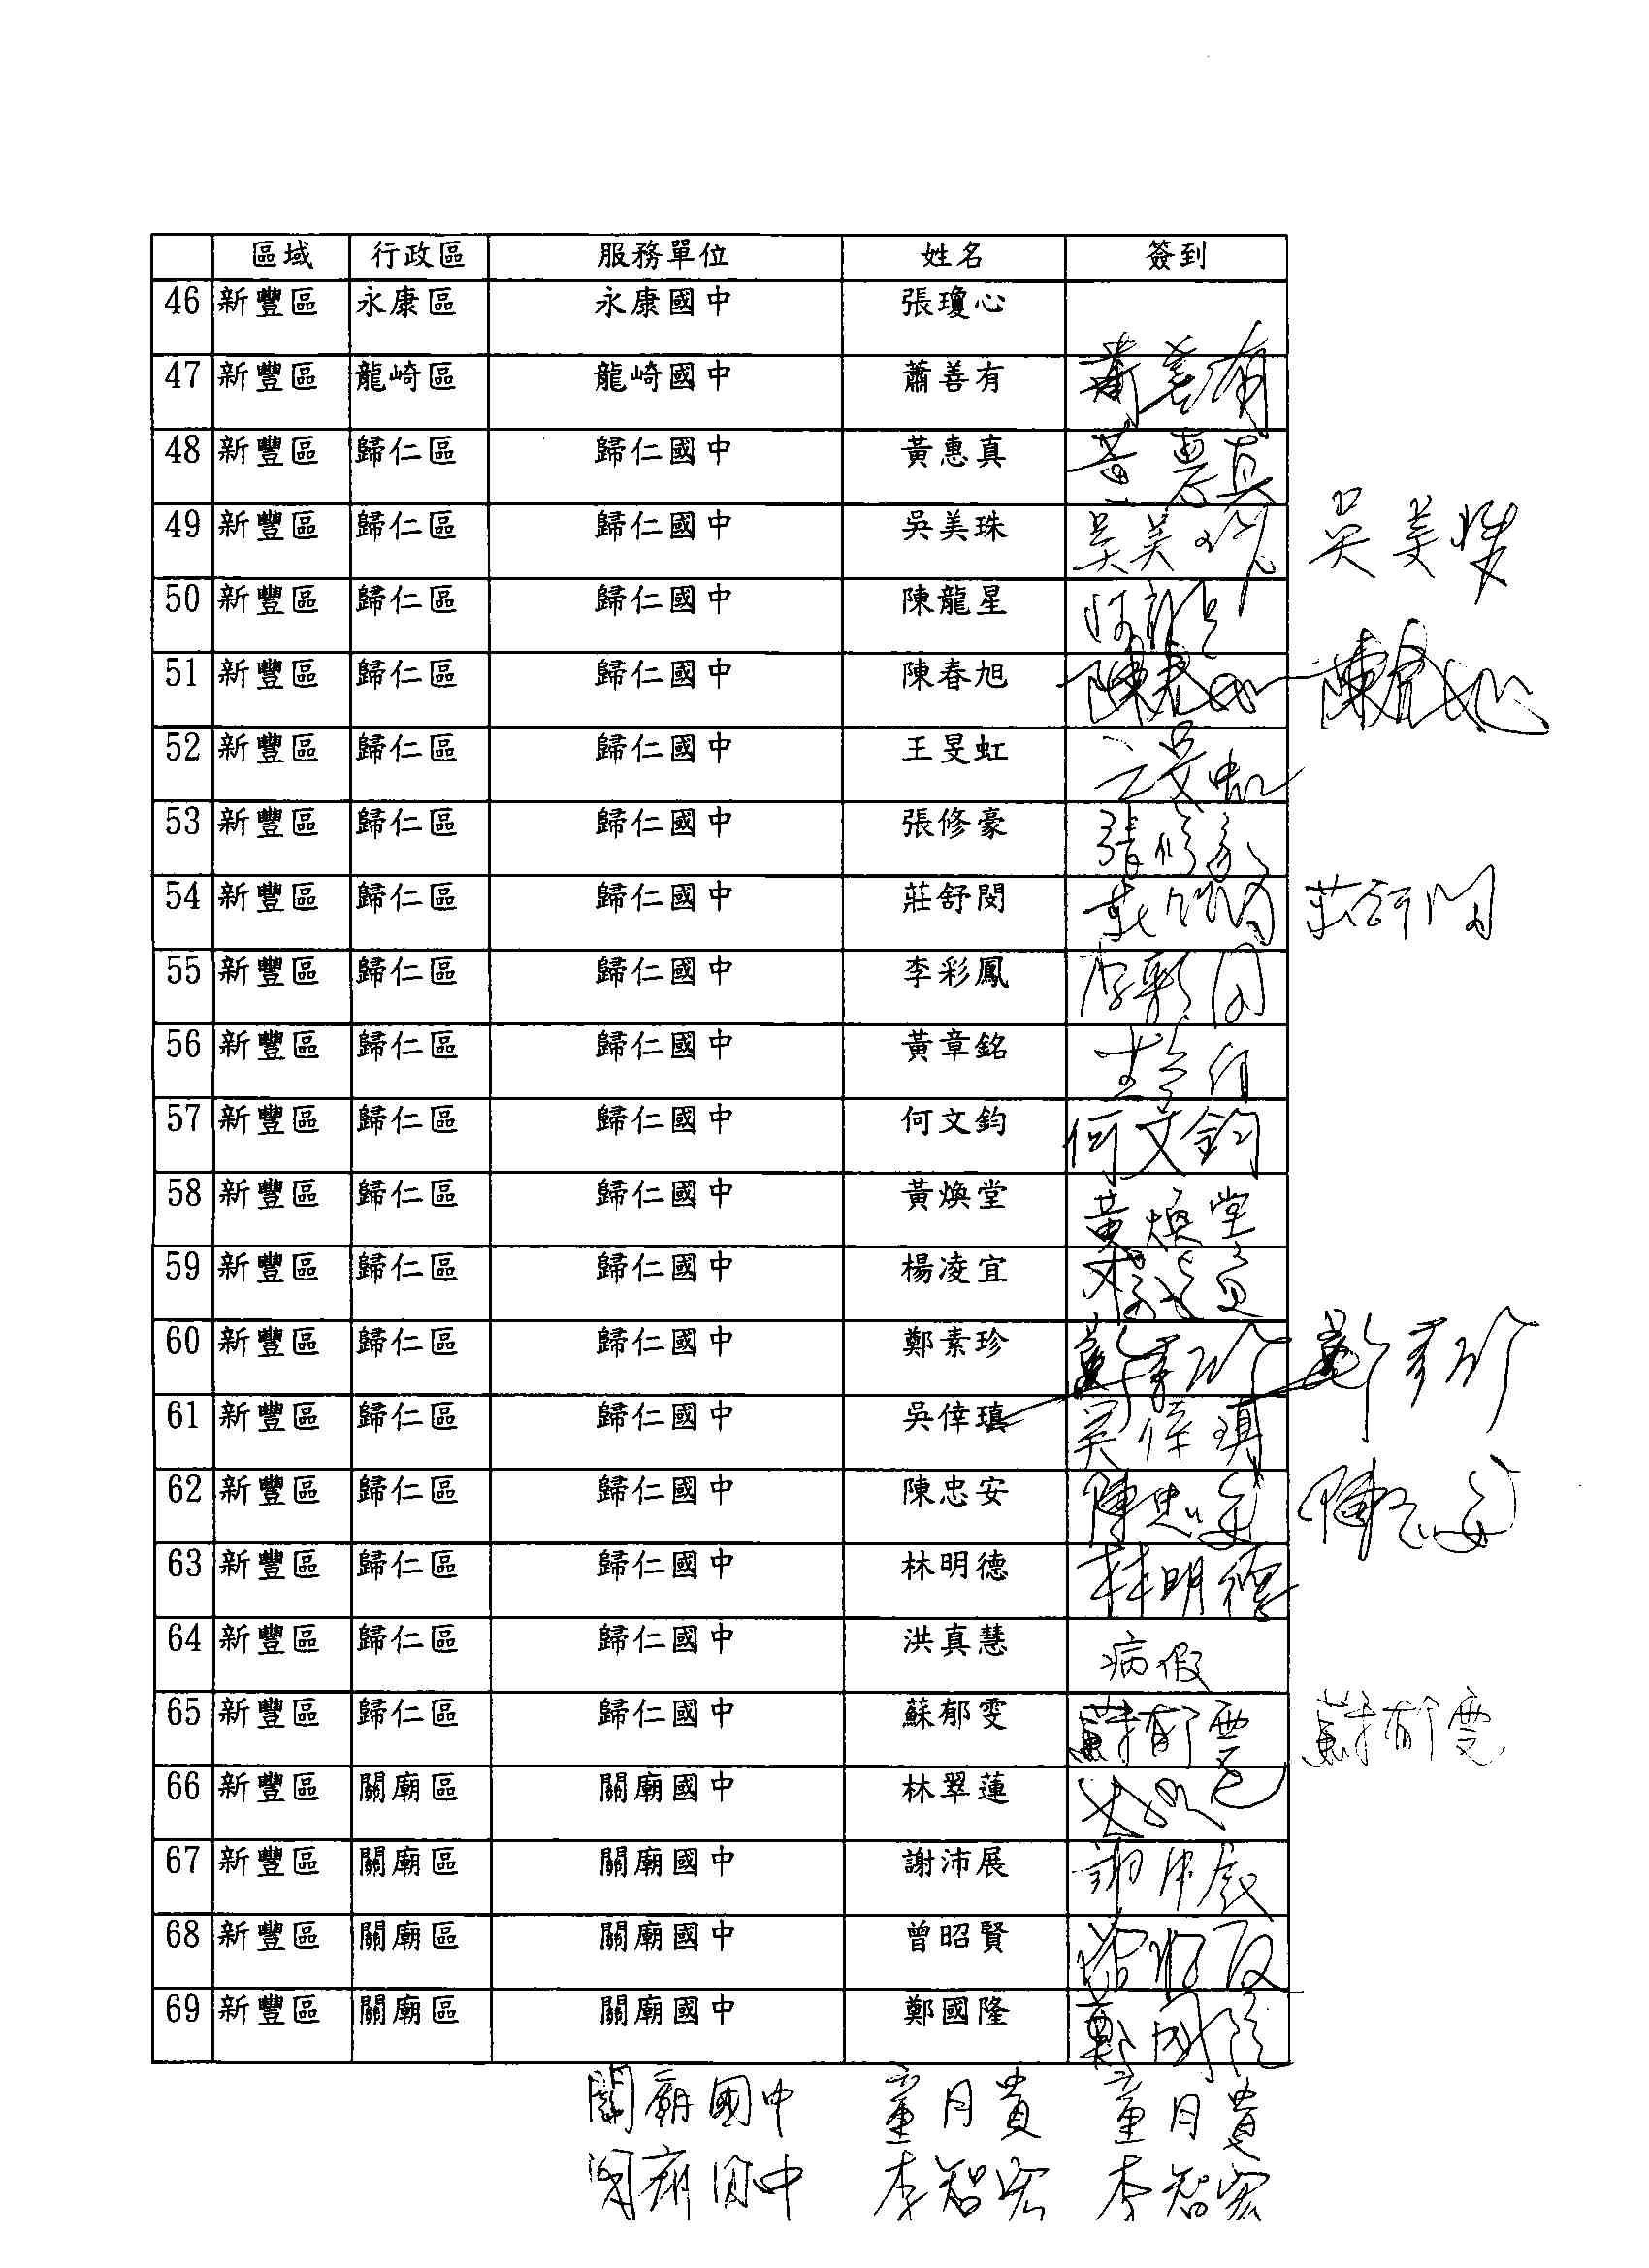 區域 行政區 服務單位 姓名 簽到
46 新豐區 永康區 永康國中 張瓊心
47 新豐區 龍崎區 龍崎國中 蕭善有 蕭善有
48 新豐區 歸仁區 歸仁國中 黃惠真 黃惠真
49 新豐區 歸仁區 歸仁國中 吳美珠 吳美珠 吳美
50 新豐區 歸仁區 歸仁國中 陳龍星 陳龍星
51 新豐區 歸仁區 歸仁國中 陳春旭 陳春旭 陳春旭
52 新豐區 歸仁區 歸仁國中 王旻虹 王旻虹
53 新豐區 歸仁區 歸仁國中 張修豪 張修豪
54 新豐區 歸仁區 歸仁國中 莊舒閔 莊舒閔 莊舒閔
55 新豐區 歸仁區 歸仁國中 李彩鳳 李彩鳳
56 新豐區 歸仁區 歸仁國中 黃章銘 黃章銘
57 新豐區 歸仁區 歸仁國中 何文鈞 何文鈞
58 新豐區 歸仁區 歸仁國中 黃煥堂 黃煥堂
59 新豐區 歸仁區 歸仁國中 楊凌宜 楊凌宜
60 新豐區 歸仁區 歸仁國中 鄭素珍 鄭素珍 鄭素珍
61 新豐區 歸仁區 歸仁國中 吳倖瑱 吳倖瑱
62 新豐區 歸仁區 歸仁國中 陳忠安 陳忠安 陳忠安
63 新豐區 歸仁區 歸仁國中 林明德 林明德
64 新豐區 歸仁區 歸仁國中 洪真慧 病假
65 新豐區 歸仁區 歸仁國中 蘇郁雯 蘇郁雯 蘇郁雯
66 新豐區 關廟區 關廟國中 林翠蓮
67 新豐區 關廟區 關廟國中 謝沛展 謝沛展
68 新豐區 關廟區 關廟國中 曾昭賢 曾昭賢
69 新豐區 關廟區 關廟國中 鄭國隆 鄭國隆
關廟國中 童月貴 童月貴
關廟國中 李智宏 李智宏